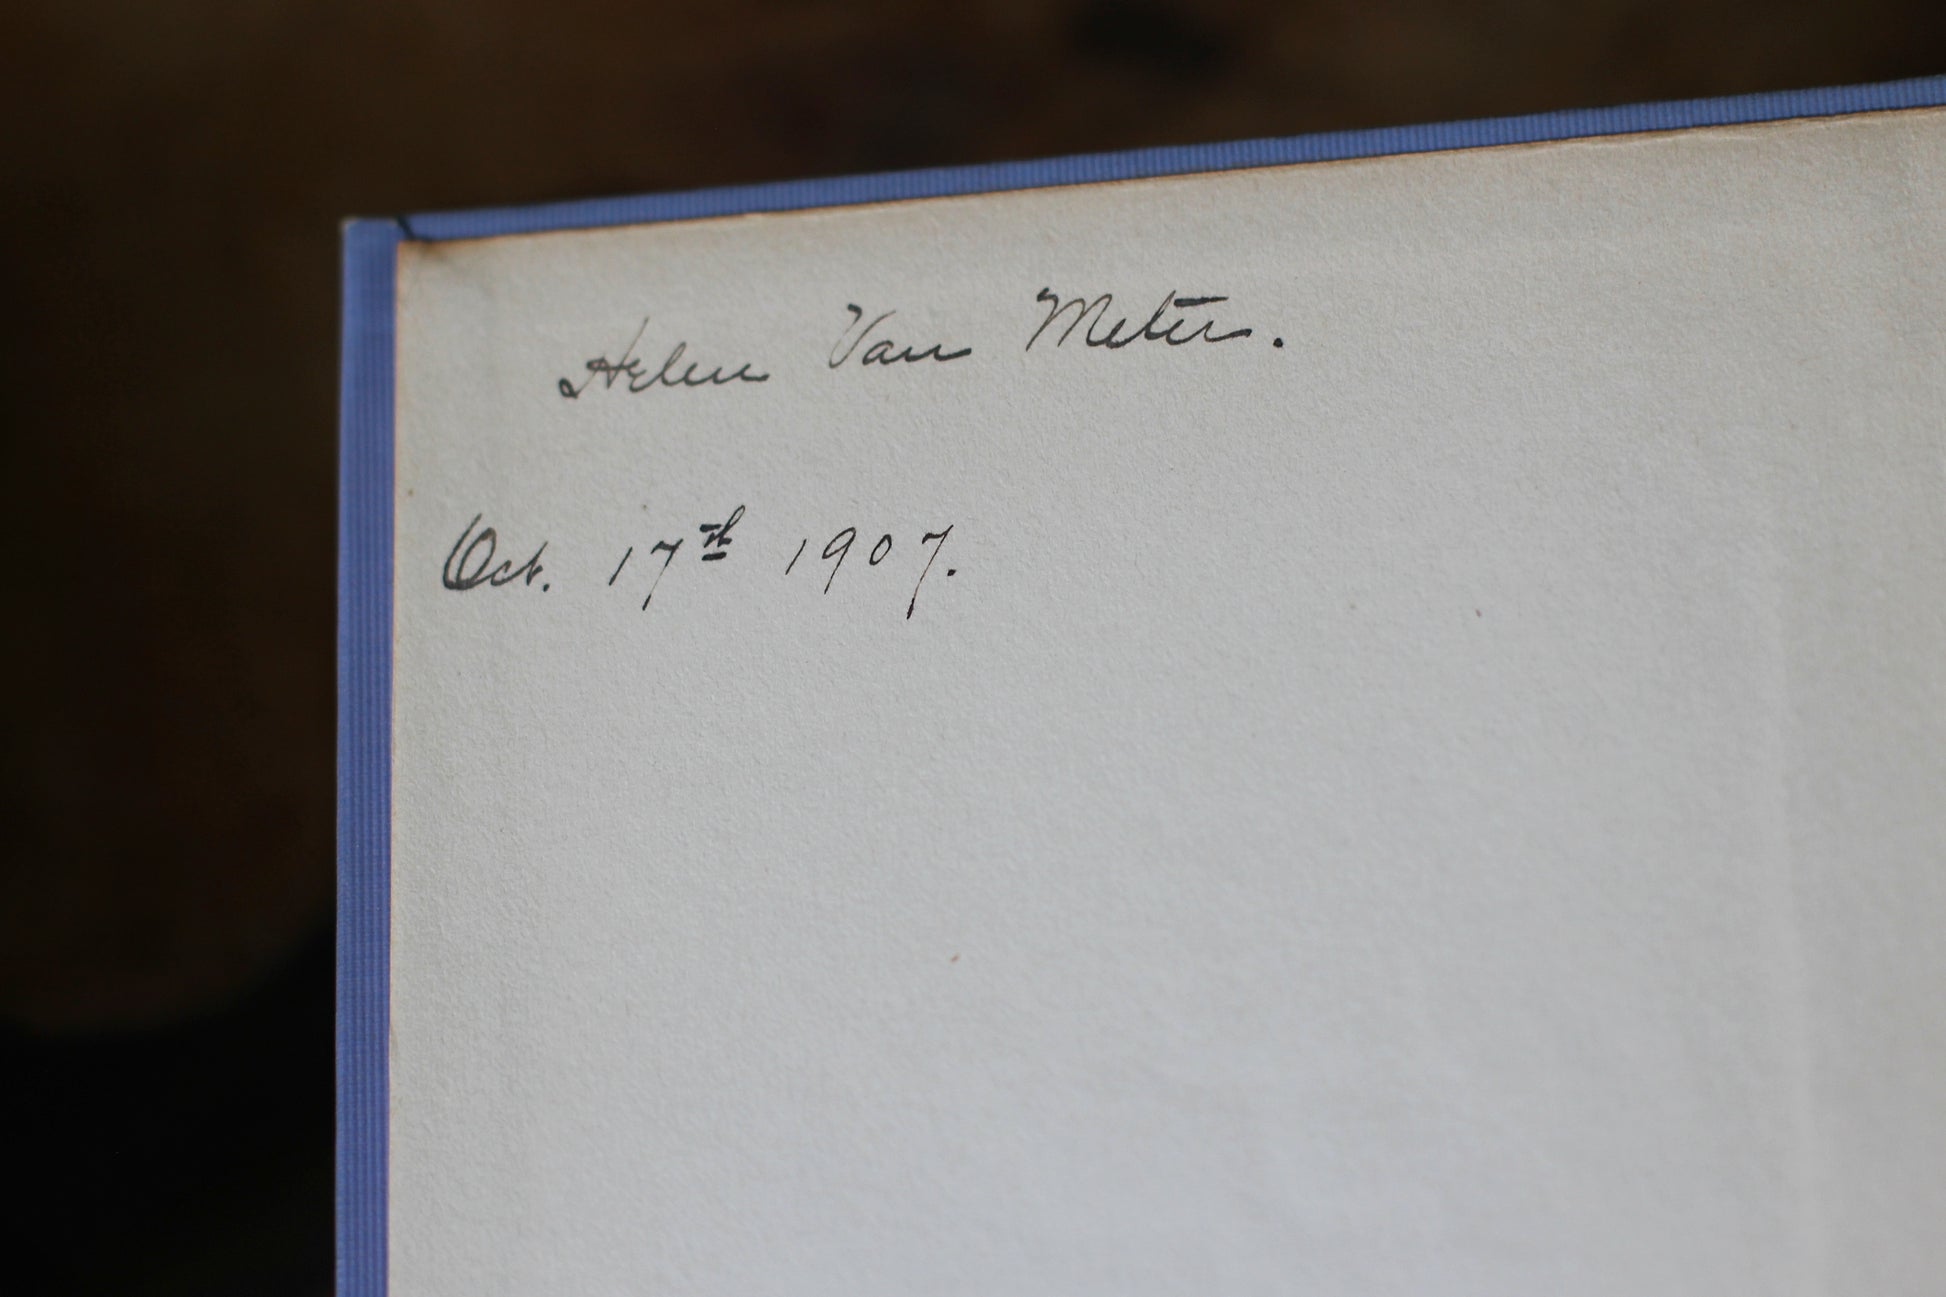 Helen Van Meter.
Oct. 17th 1907.